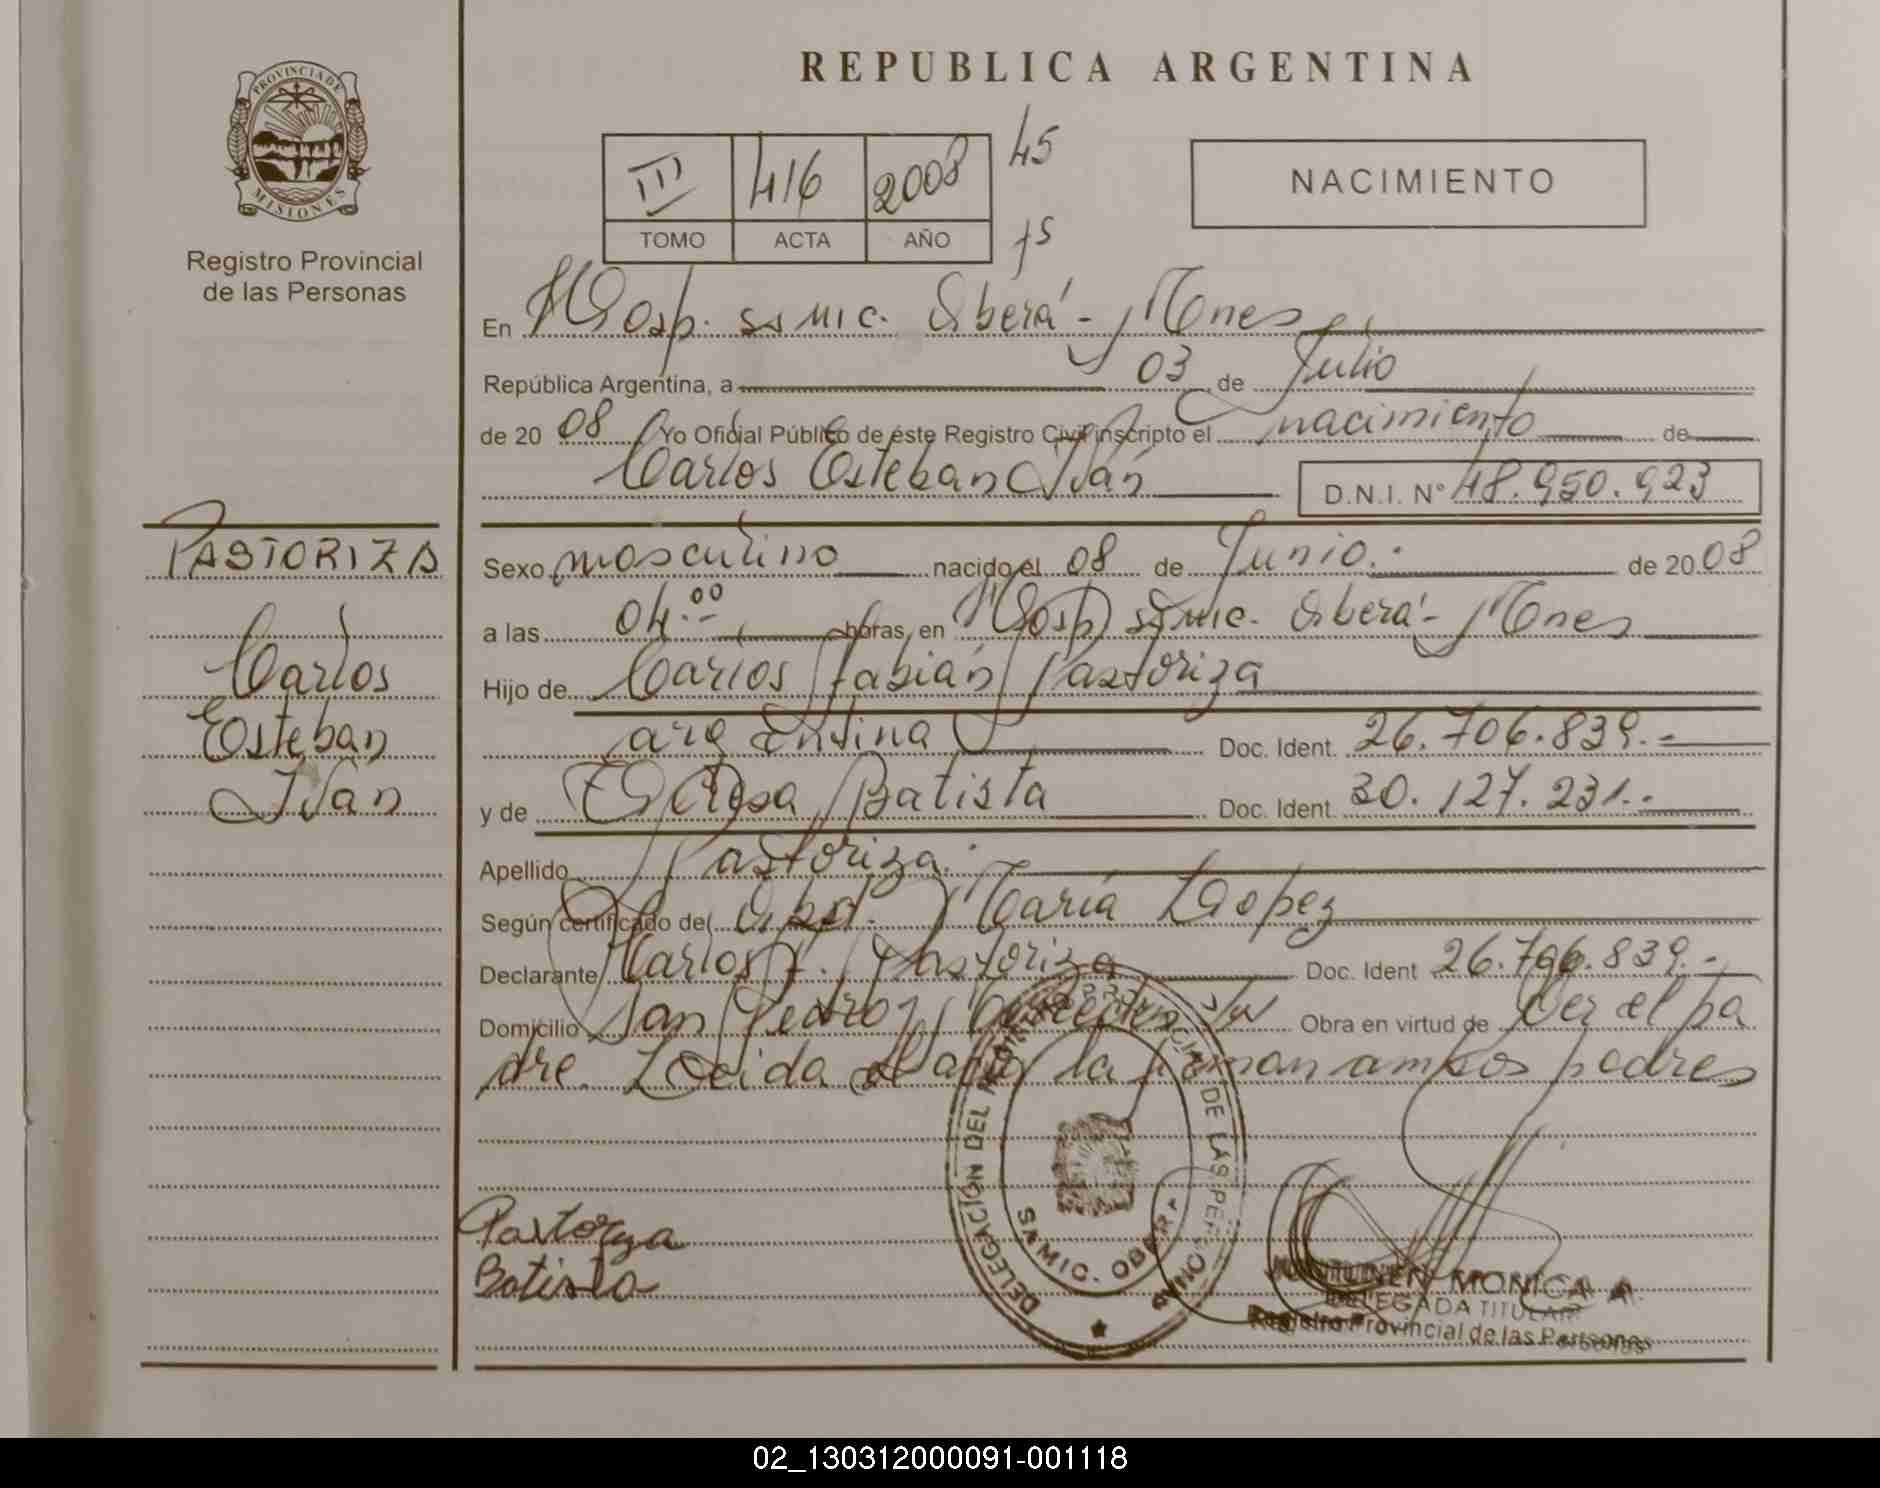 PROVINCIA DE
MISIONES
Registro Provincial
de las Personas
REPUBLICA ARGENTINA
III 416 2008 45
TOMO ACTA AÑO
NACIMIENTO
En Hosp. SAMIC. Oberá - Mnes
República Argentina, a 03 de Julio
de 20 08 Yo Oficial Público de éste Registro Civil inscripto el nacimiento de
Carlos Esteban Iván D.N.I. Nº 48.950.923
PASTORIZA
Carlos
Esteban
Iván
Sexo masculino nacido el 08 de Junio. de 20 08
a las 04:00 horas, en Hosp SAMIC. Oberá - Mnes
Hijo de Carlos Fabián Pastoriza
argentina Doc. Ident. 26.706.839.-
y de Rosa Batista Doc. Ident. 30.127.231.-
Apellido Pastoriza.
Según certificado de Obst. María López
Declarante Carlos F. Pastoriza Doc. Ident 26.706.839.-
Domicilio San Pedro Obra en virtud de Ser el pa
dre. Leída el acta la firman ambos padres
Pastoriza
Batista
DELEGACIÓN DEL REGISTRO PROVINCIAL DE LAS PERSONAS
SAMIC. OBERA
MONICA A.
DELEGADA TITULAR
Registro Provincial de las Personas
02_130312000091-001118